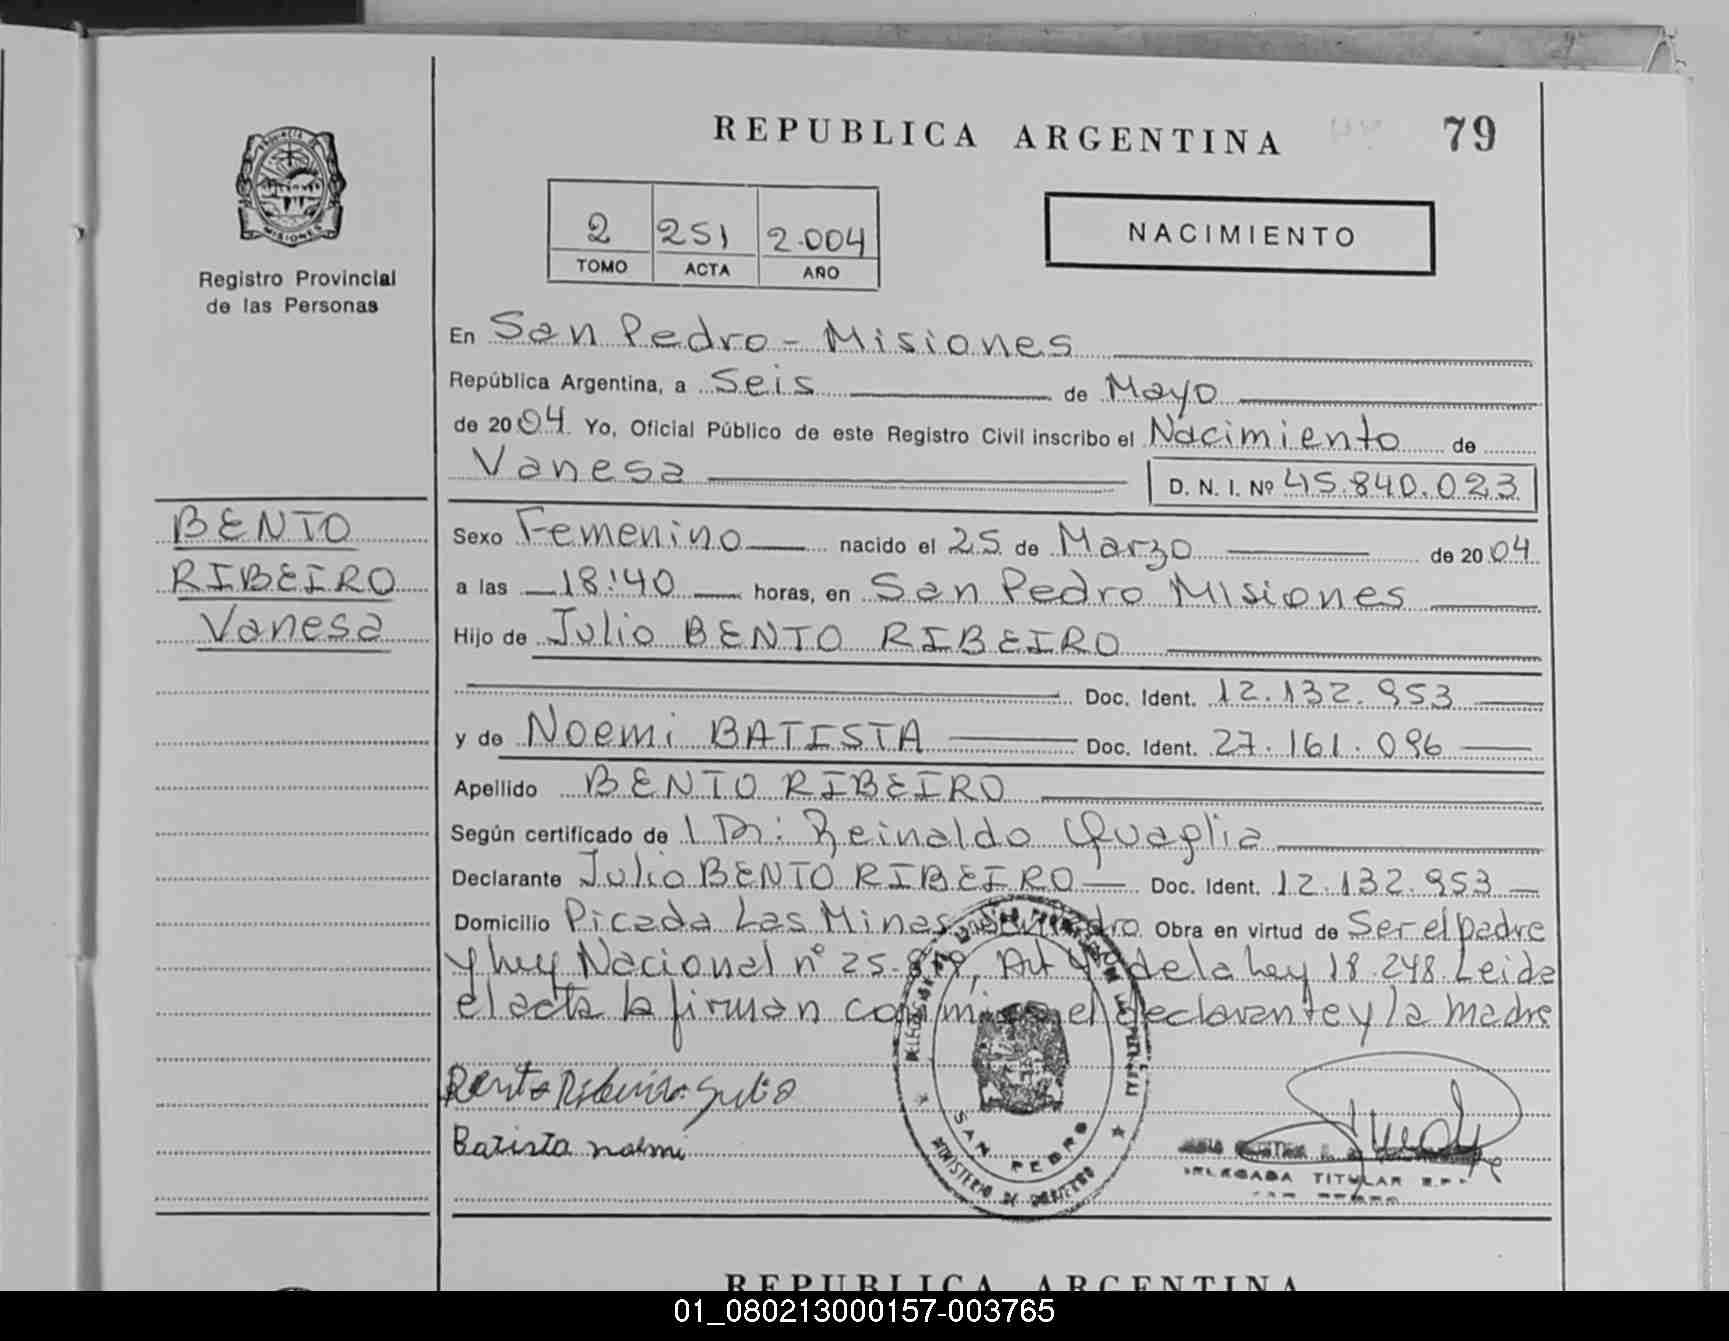 REPUBLICA ARGENTINA
79
PROVINCIA DE MISIONES
Registro Provincial
de las Personas
2 251 2.004
TOMO ACTA AÑO
NACIMIENTO
En San Pedro - Misiones
República Argentina, a Seis de Mayo
de 2004. Yo, Oficial Público de este Registro Civil inscribo el Nacimiento de
Vanesa D. N. I. Nº 45.840.023
BENTO
RIBEIRO
Vanesa
Sexo Femenino nacido el 25 de Marzo de 2004
a las 18:40 horas, en San Pedro Misiones
Hijo de Julio BENTO RIBEIRO
Doc. Ident. 12.132.953
y de Noemi BATISTA Doc. Ident. 27.161.096
Apellido BENTO RIBEIRO
Según certificado de Dr: Reinaldo Quaglia
Declarante Julio BENTO RIBEIRO Doc. Ident. 12.132.953
Domicilio Picada Las Minas San Pedro Obra en virtud de Ser el padre
y ley Nacional nº 25.819, Art 4º de la Ley 18.248. Leida
el acta la firman conmigo el declarante y la madre
Bento Ribeiro Julio
Batista noemi
SAN PEDRO
MINISTERIO DE GOBIERNO
DELEGADA TITULAR
REPUBLICA ARGENTINA
01_080213000157-003765